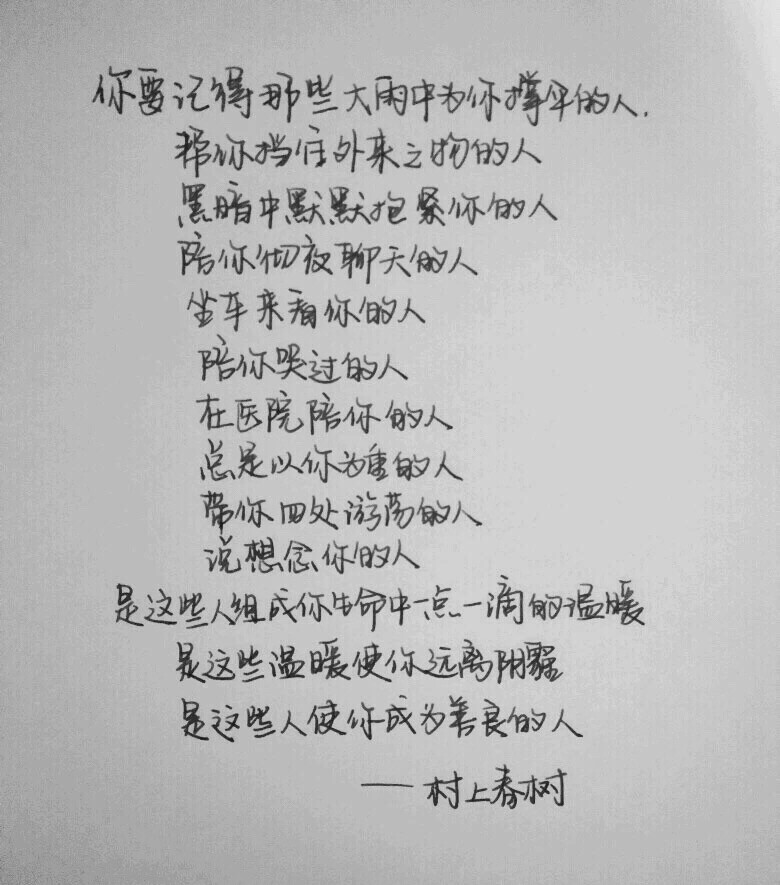 你要记得那些大雨中为你撑伞的人.
帮你挡住外来之物的人
黑暗中默默抱紧你的人
陪你彻夜聊天的人
坐车来看你的人
陪你哭过的人
在医院陪你的人
总是以你为重的人
带你四处游荡的人
说想念你的人
是这些人组成你生命中一点一滴的温暖
是这些温暖使你远离阴霾
是这些人使你成为善良的人
——村上春树